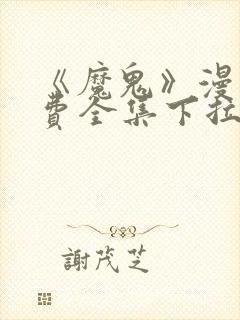 《魔鬼》漫
费全集下拉
謝茂芝